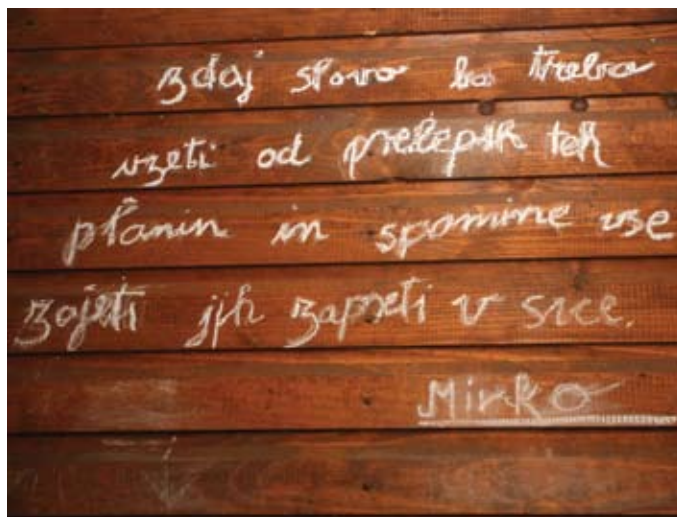 zdaj slovo bo treba
vzeti od prelepih teh
planin in spomine vse
zajeti jih zapreti v srce.
Mirko